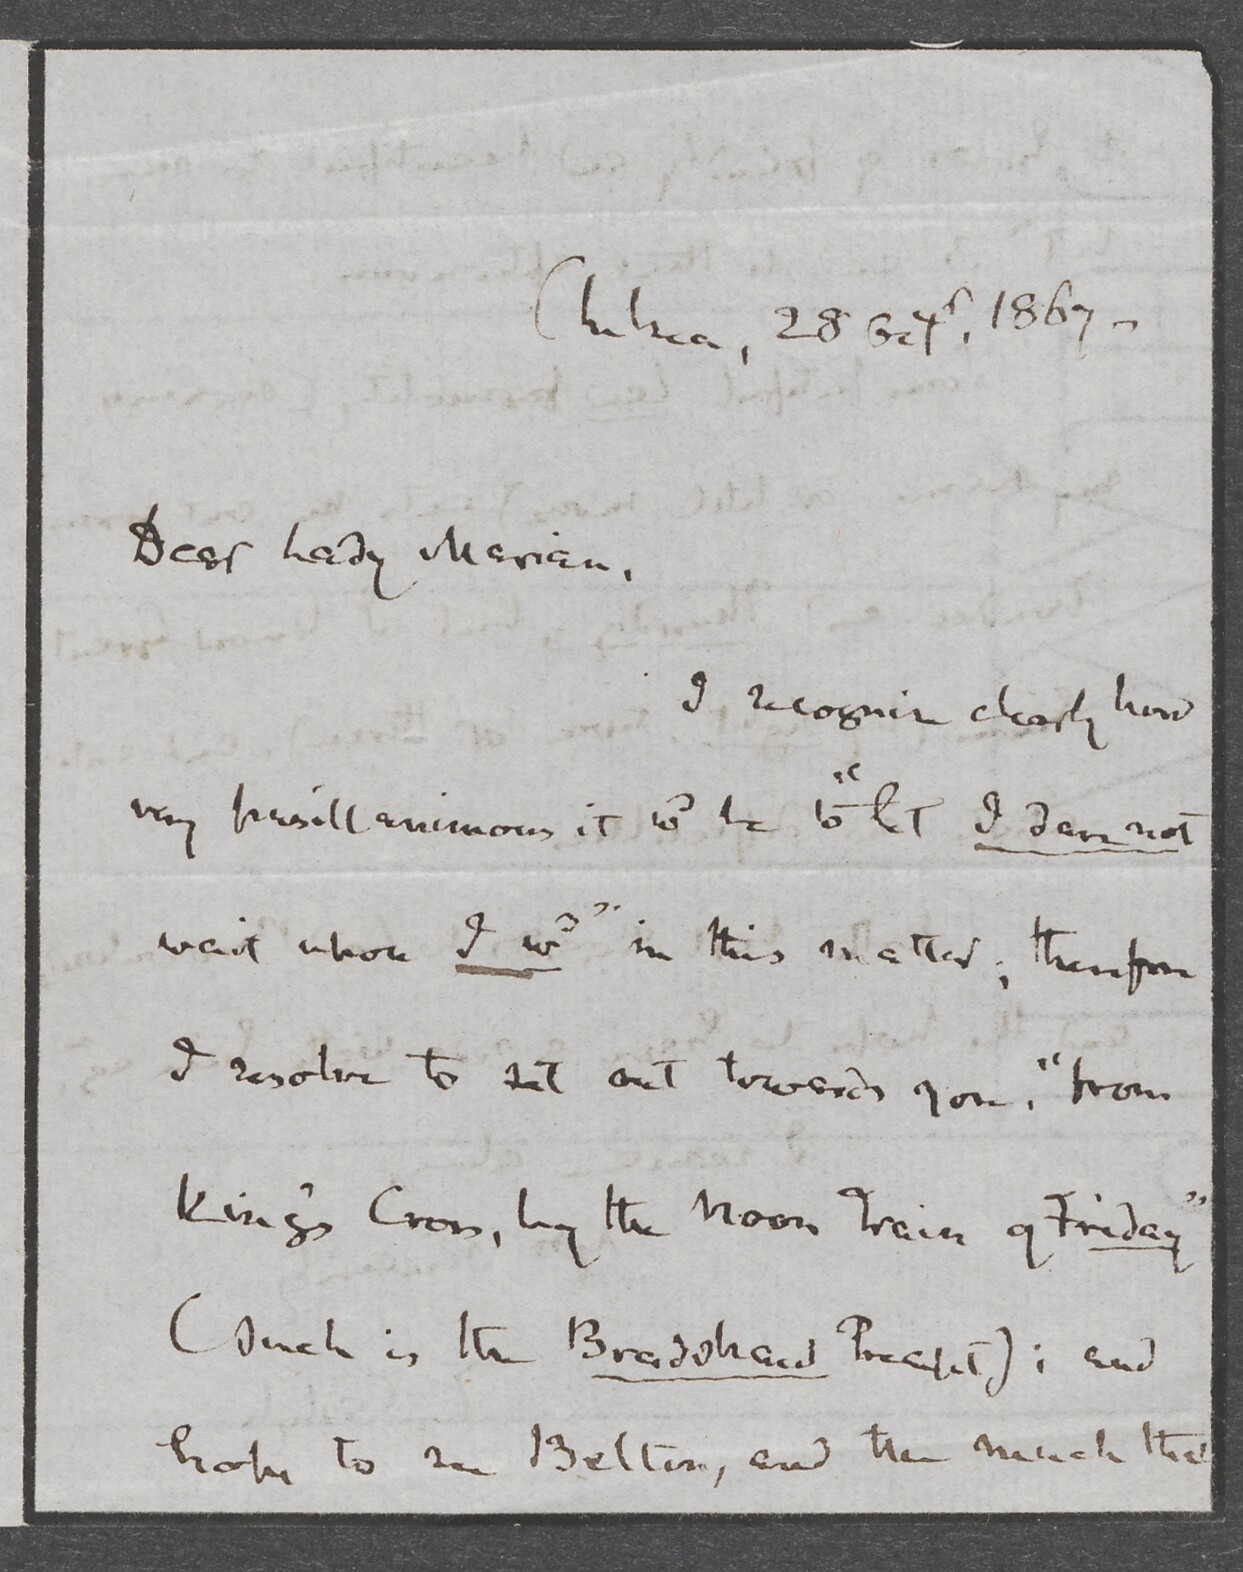 Chelsea, 28 Octr, 1867 –
Dear Lady Marian,
I recognise clearly how
very pusillanimous it wd be to "let I dare not
wait upon I wd" in this matter; therefore
I resolve to set out towards you, "from
King's Cross, by the Noon Train of Friday"
(such is the Bradshaw Precept); and
hope to see Belton, and the much that